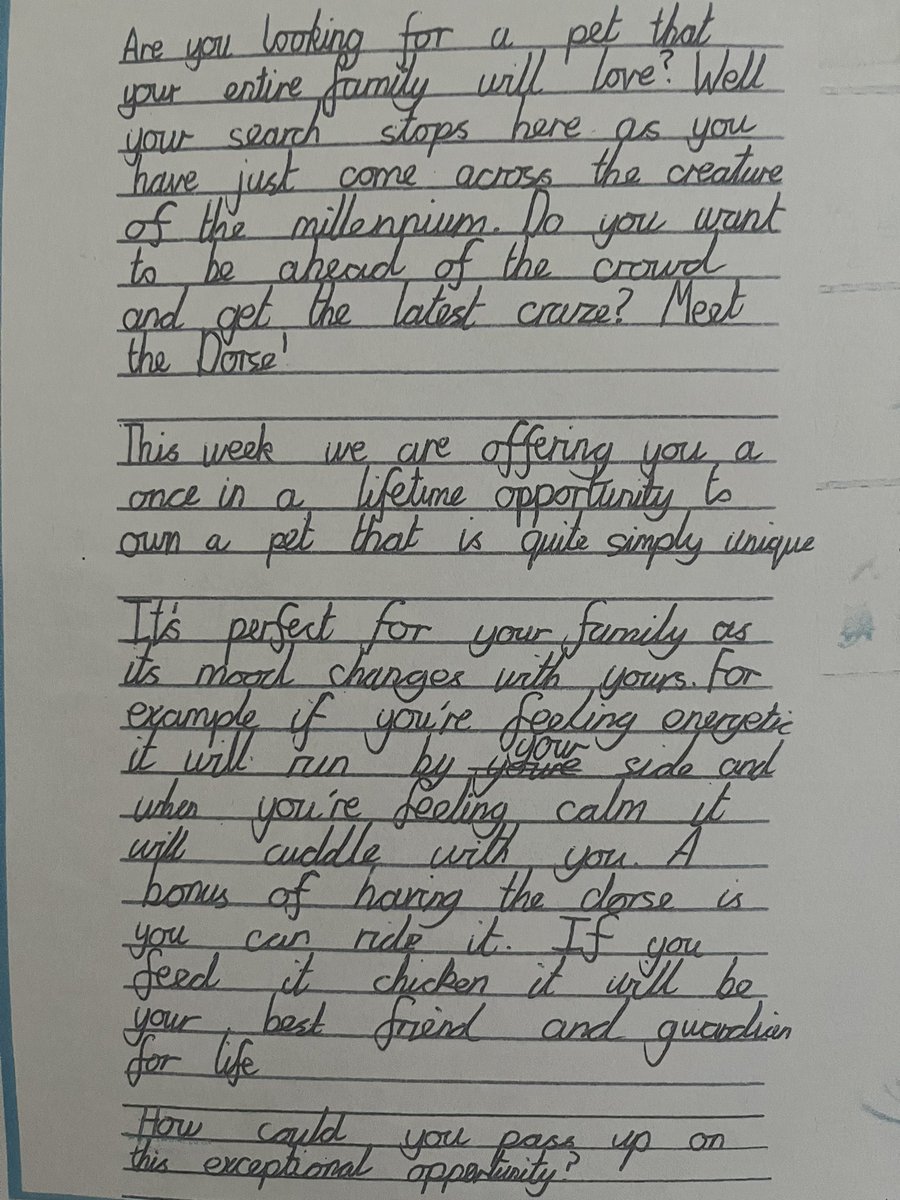 Are you looking for a pet that
your entire family will love? Well
your search stops here as you
have just come across the creature
of the millennium. Do you want
to be ahead of the crowd
and get the latest craze? Meet
the Dorse!
This week we are offering you a
once in a lifetime opportunity to
own a pet that is quite simply unique
It's perfect for your family as
its mood changes with yours. For
example if you're feeling energetic
it will run by your side and
when you're feeling calm it
will cuddle with you. A
bonus of having the dorse is
you can ride it. If you
feed it chicken it will be
your best friend and guardian
for life
How could you pass up on
this exceptional opportunity?